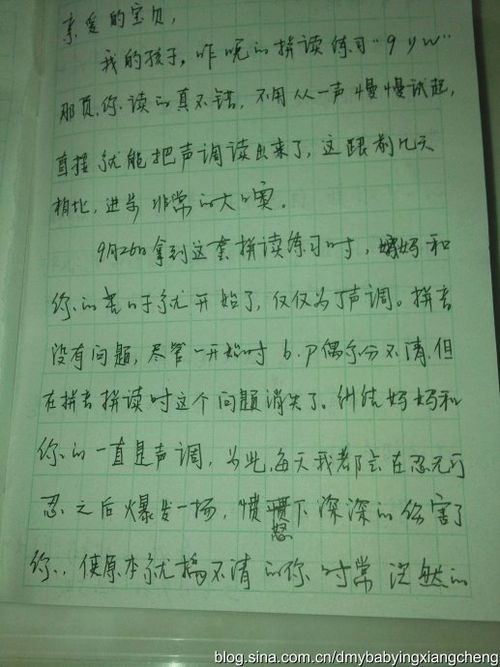 亲爱的宝贝,
我的孩子,昨晚的拼读练习“g y w”
那页,你读的真不错,不用从一声慢慢试起,
直接就能把声调读出来了,这跟前几天
相比,进步非常的大噢。
9月26日拿到这套拼读练习时,妈妈和
你的苦日子就开始了,仅仅为了声调。拼音
没有问题,尽管一开始时b、p偶尔分不清,但
在拼音拼读时这个问题消失了。纠结妈妈和
你的一直是声调,为此,每天我都会在忍无可
忍之后爆发一场,愤怒下深深的伤害了
你,使原本就搞不清的你时常茫然的
blog.sina.com.cn/dmybabyingxiangcheng